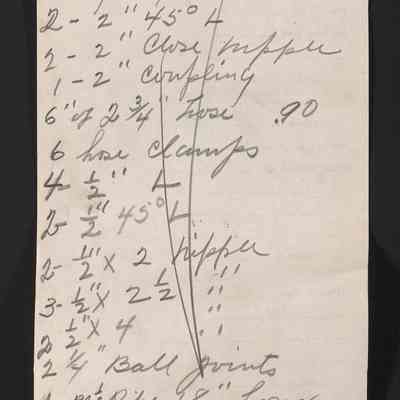 2 - 2" 45° L
2 - 2" Close nipple
1 - 2" Coupling
6" of 2 3/4" hose .90
6 hose Clamps
4 - 1/2" L
2 - 1/2" 45° L
2 - 1/2" x 2 nipple
3 - 1/2" x 2 1/2 "
2 1/2" x 4 "
2 1/4" Ball joints